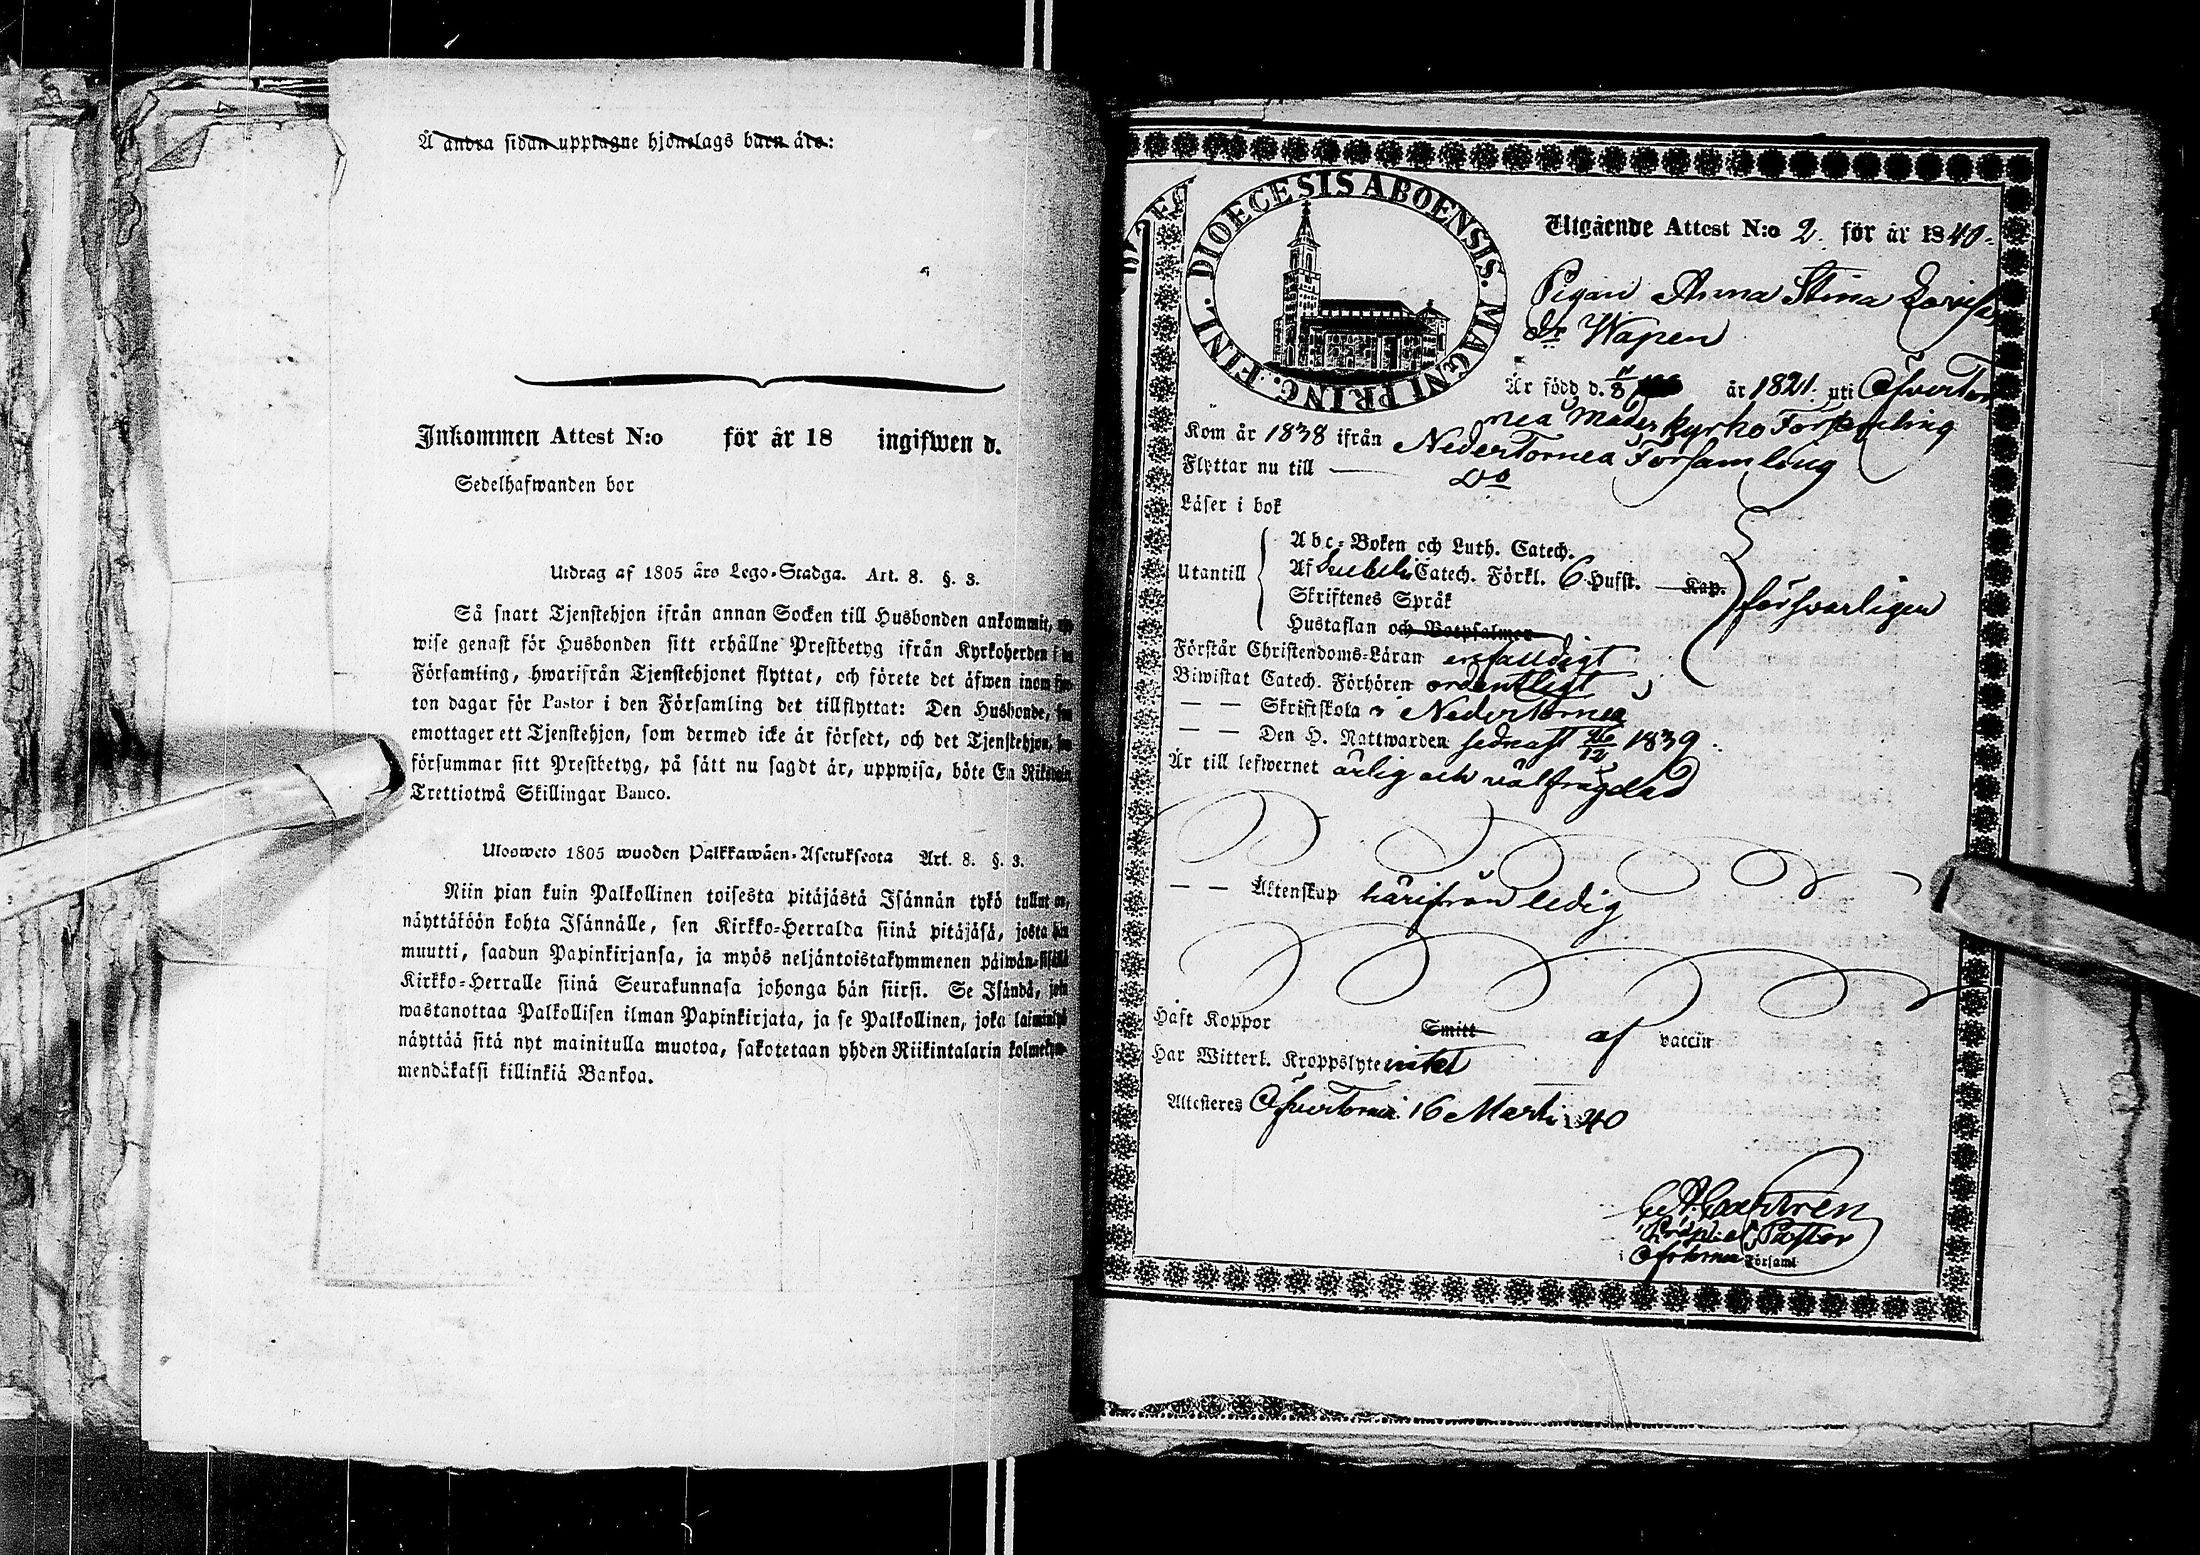 Å andra sidan upptagne hjonelags barn äro:
Inkommen Attest N:o för år 18 ingifwen d.
Sedelhafwanden bor
Utdrag af 1805 års Lego-Stadga. Art. 8. §. 3.
Så snart Tjenstehjon ifrån annan Socken till Husbonden ankommit,
wise genast för Husbonden sitt erhållne Prestbetyg ifrån Kyrkoherden i
Församling, hwarifrån Tjenstehjonet flyttat, och förete det äfwen inom
ton dagar för Pastor i den Församling det tillflyttat: Den Husbonde,
emottager ett Tjenstehjon, som dermed icke är försedt, och det Tjenstehjon,
försummar sitt Prestbetyg, på sätt nu sagdt är, uppwisa, böte En
Trettiotwå Skillingar Banco.
Ulosweto 1805 wuoden Palkkawäen-Asetuksesta Art. 8. §. 3.
Niin pian kuin Palkollinen toisesta pitäjästä Isännän tykö tullut on,
näyttäköön kohta Isännälle, sen Kirkko-Herralda siinä pitäjäsä, josta hän
muutti, saadun Papinkirjansa, ja myös neljäntoistakymmenen päiwän
Kirkko-Herralle siinä Seurakunnasa johonga hän siirsi. Se Isändä, joka
wastanottaa Palkollisen ilman Papinkirjata, ja se Palkollinen, joka
näyttää sitä nyt mainitulla muotoa, sakotetaan yhden Riikintalarin
mendäkaksi killinkiä Bankoa.
DIOECESIS ABOENSIS. MAGNI PRINC. FINL.
Utgående Attest N:o 2. för år 1840.
Pigan Anna Stina Lovisa
dr Wapen
Är född d. 11/8 år 1821. uti Öfvertor
nea Moderkyrko Församling
Kom år 1838 ifrån NederTornea Församling
Flyttar nu till — Do
Läser i bok
Utantill
Abc-Boken och Luth. Catech.
Af Catech. Förkl. 6 Hufst. Kap.
Skriftenes Språk
Hustaflan och Botpsalmer
försvarligen
Förstår Christendoms-Läran enfaldigt
Biwistat Catech. Förhören ordentligt
— — Skriftskola i NederTornea
— — Den H. Nattwarden sednast 26/12 1839
Är till lefwernet ärlig och välfrägdad
— — Äktenskap härifrån ledig
Haft Koppor Smitt af vaccin
Har Witterl. Kroppslyte intet
Attesteres Öfvertorneå 16 Marti 1840
Castrén
Pastor
i Öfvertornea Församl